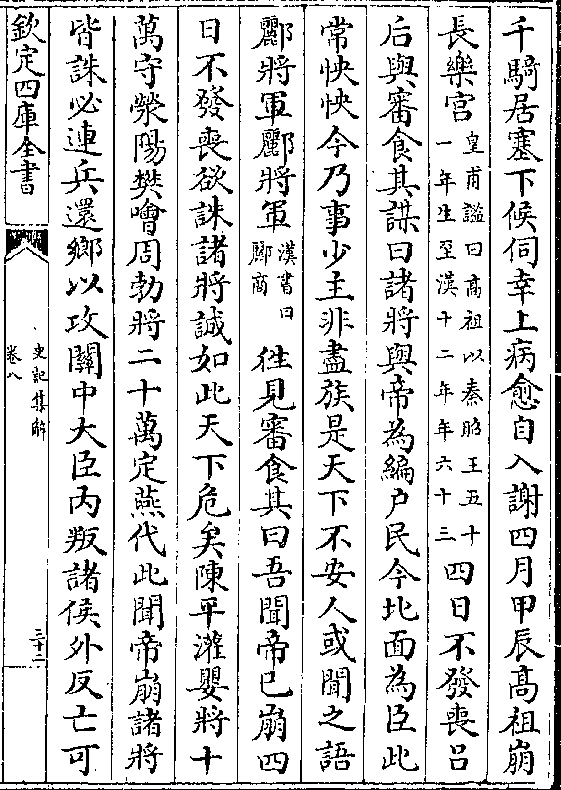 千騎居塞下候伺幸上病愈自入謝四月甲辰髙祖崩
長樂宫皇甫謐曰高祖以秦昭王五十一年生至漢十二年年六十三四日不發喪吕
后與審食其謀曰諸將與帝為編户民今北面為臣此
常怏怏今乃事少主非盡族是天下不安人或聞之語
酈將軍酈將軍漢書曰酈商往見審食其曰吾聞帝已崩四
日不發喪欲誅諸將誠如此天下危矣陳平灌嬰將十
萬守滎陽樊噲周勃將二十萬定燕代此聞帝崩諸將
皆誅必連兵還鄉以攻關中大臣内叛諸侯外反亡可
欽定四庫全書
史記集解
卷八
三十二